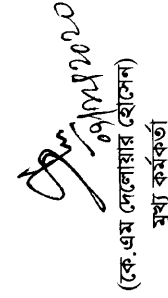 ০৬/০৮/২০২০
(কে.এম দেলোয়ার হোসেন)
মূখ্য কর্মকর্তা